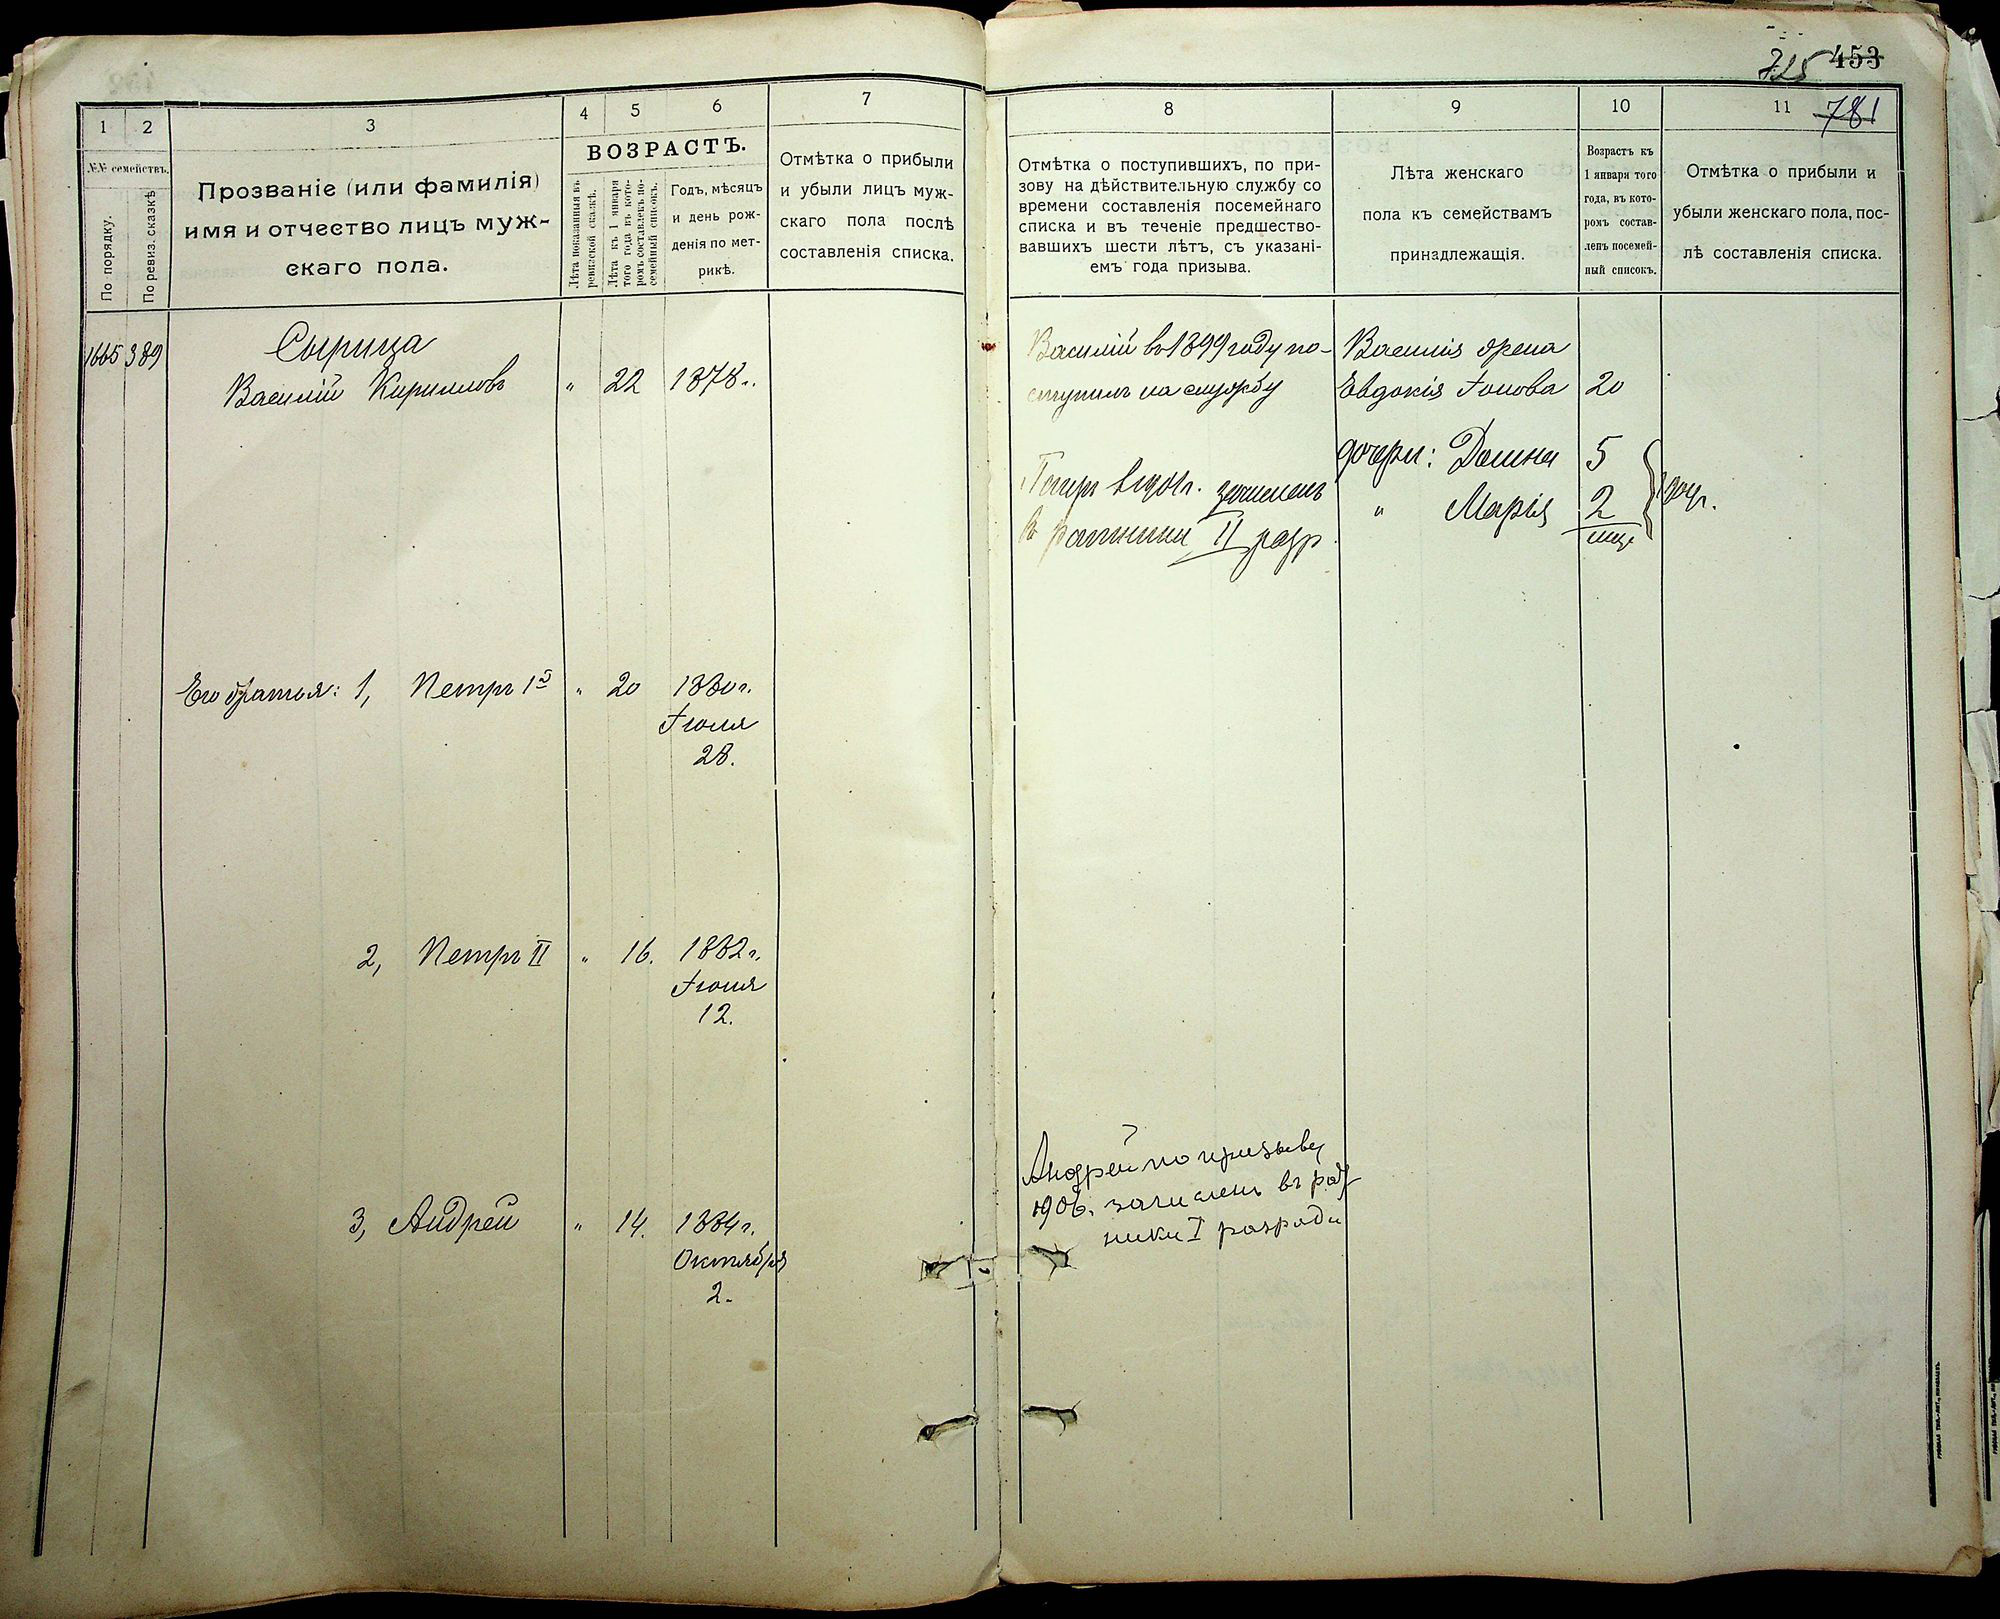 725 453
781
1
2
3
4
5
6
7
№№ семействъ.
По порядку.
По ревиз. сказкѣ
Прозваніе (или фамилія)
имя и отчество лицъ муж-
скаго пола.
ВОЗРАСТЪ.
Лѣта показанныя въ
ревизской сказкѣ.
Лѣта къ 1 января
того года въ кото-
ромъ составленъ по-
семейный списокъ.
Годъ, мѣсяцъ
и день рож-
денія по мет-
рикѣ.
Отмѣтка о прибыли
и убыли лицъ муж-
скаго пола послѣ
составленія списка.
1665 389
Сырица
Василій Кирилловъ " 22 1878 г.
Его братья: 1, Петръ 1й " 20 1880 г.
Іюля
28.
2, Петръ II " 16. 1882 г.
Іюня
12.
3, Андрей " 14. 1884 г.
Октября
2.
8
9
10
11
Отмѣтка о поступившихъ, по при-
зову на дѣйствительную службу со
времени составленія посемейнаго
списка и въ теченіе предшество-
вавшихъ шести лѣтъ, съ указані-
емъ года призыва.
Лѣта женскаго
пола къ семействамъ
принадлежащія.
Возрастъ къ
1 января того
года, въ кото-
ромъ состав-
ленъ посемей-
ный списокъ.
Отмѣтка о прибыли и
убыли женскаго пола, пос-
лѣ составленія списка.
Василій въ 1899 году по-
ступилъ на службу
Петръ в 1901 г. зачисленъ
в ратники II разр.
Василія жена
Евдокія Іонова 20
дочери: Домна 5
" Марія 2
Андрей по призыву
1906. зачисленъ въ рат
ники I разряда